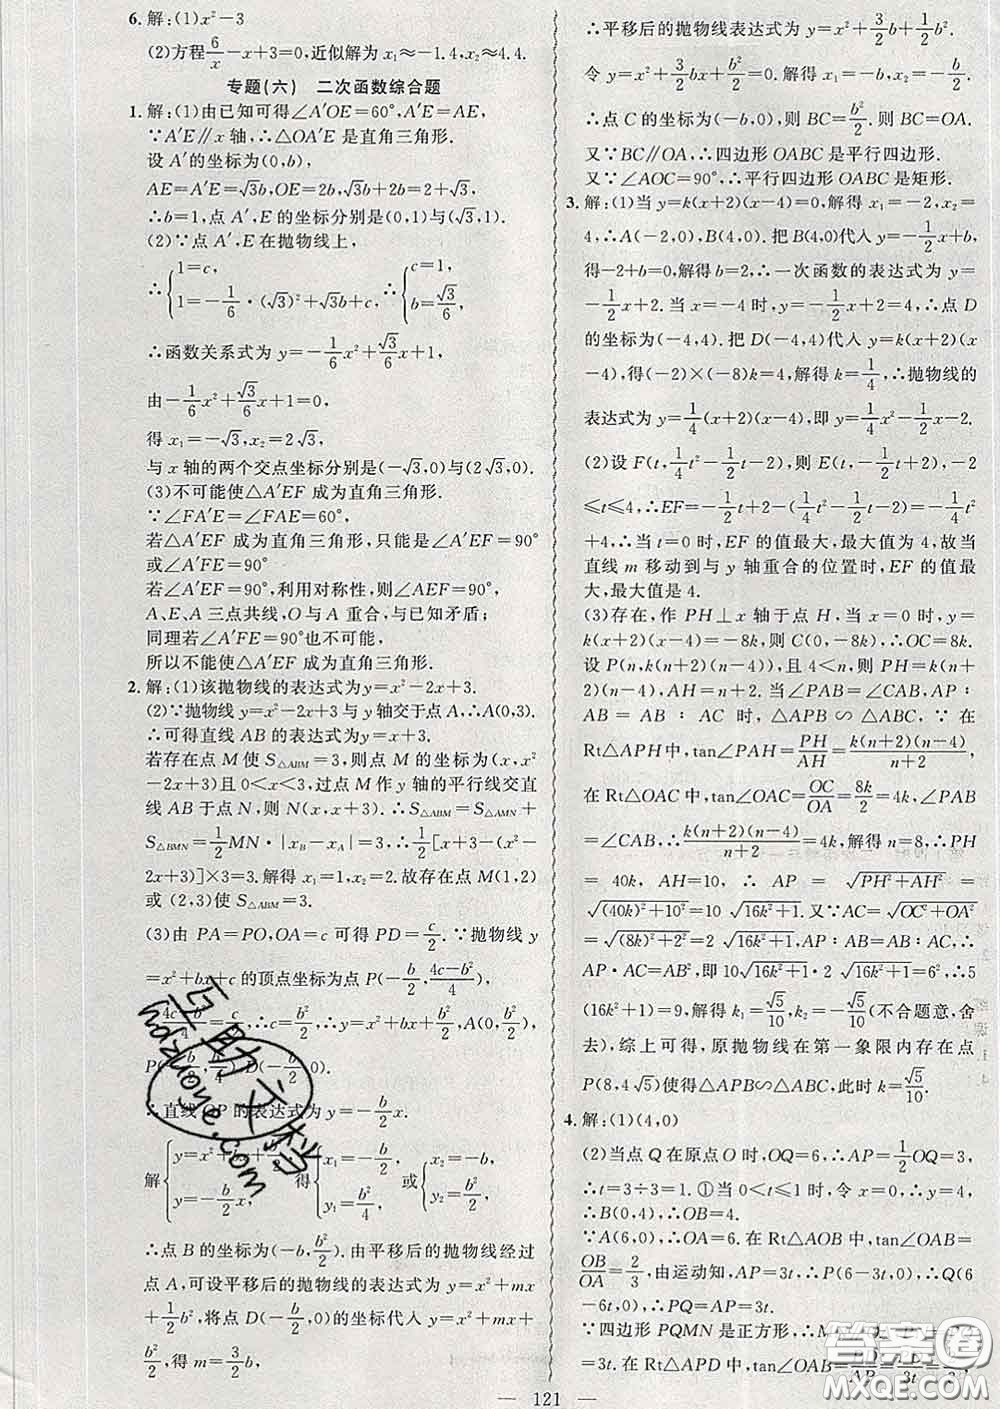 6. 解:(1)x²-3
(2)方程6/x-x+3=0,近似解为 x₁≈-1.4,x₂≈4.4.
专题(六) 二次函数综合题
1. 解:(1)由已知可得∠A′OE=60°,A′E=AE,
∵A′E∥x 轴,∴△OA′E 是直角三角形.
设 A′的坐标为(0,b),
AE=A′E=√3b,OE=2b,2b+√3b=2+√3,
∴b=1,点 A′,E 的坐标分别是(0,1)与(√3,1).
(2)∵点 A′,E 在抛物线上,
∴{1=c, 1=-1/6·(√3)²+√3b+c, ∴{c=1, b=√3/6,
∴函数关系式为 y=-1/6x²+√3/6x+1,
由-1/6x²+√3/6x+1=0,
得 x₁=-√3,x₂=2√3,
与 x 轴的两个交点坐标分别是(-√3,0)与(2√3,0).
(3)不可能使△A′EF 成为直角三角形.
∵∠FA′E=∠FAE=60°,
若△A′EF 成为直角三角形,只能是∠A′EF=90°
或∠A′FE=90°
若∠A′EF=90°,利用对称性,则∠AEF=90°,
A、E、A三点共线,O 与 A 重合,与已知矛盾;
同理若∠A′FE=90°也不可能,
所以不能使△A′EF 成为直角三角形.
2. 解:(1)该抛物线的表达式为y=x²-2x+3.
(2)∵抛物线y=x²-2x+3与y轴交于点A,∴A(0,3).
∴可得直线 AB 的表达式为 y=x+3.
若存在点 M 使 S△ABM=3,则点 M 的坐标为(x,x²
-2x+3)且 0<x<3,过点 M 作 y 轴的平行线交直
线 AB 于点 N,则 N(x,x+3).∴S△ABM=S△AMN+
S△BMN=1/2MN·|x_B-x_A|=3,∴1/2[x+3-(x²-
2x+3)]×3.解得 x₁=1,x₂=2.故存在点 M(1,2)
或(2,3)使 S△ABM=3.
(3)由 PA=PO,OA=c 可得 PD=c/2.∵抛物线 y
=x²+bx+c 的顶点坐标为 P(-b/2,(4c-b²)/4),
∴(4c-b²)/4=c/2,∴c=b²/2,∴y=x²+bx+b²/2,A(0,b²/2),
P(-b/2,b²/4),
∴直线OP的表达式为 y=-b/2x.
解{y=x²+bx+b²/2, y=-b/2x, 得{x₁=-b/2, y₁=b²/4, 或{x₂=-b, y₂=b²/2,
∴点 B 的坐标为(-b,b²/2).由平移后的抛物线经过
点 A,可设平移后的抛物线的表达式为 y=x²+mx
+1/2b²,将点 D(-b/2,0)的坐标代入 y=x²+mx+
b²/2,得 m=3/2b,
∴平移后的抛物线表达式为 y=x²+3/2bx+b²/2.
令 y=x²+3/2bx+b²/2=0.解得 x₁=-b,x₂=-1/2b.
∴点 C 的坐标为(-b,0),则 BC=b²/2.∴BC=OA.
又∵BC∥OA,∴四边形 OABC 是平行四边形.
又∵∠AOC=90°,∴平行四边形 OABC 是矩形.
3. 解:(1)当 y=k(x+2)(x-4)=0,解得 x₁=-2,x₂=
4,∴A(-2,0),B(4,0).把 B(4,0)代入 y=-1/2x+b,
得-2+b=0,解得 b=2,∴一次函数的表达式为 y=
-1/2x+2.当 x=-4 时,y=-1/2x+2=4,∴点 D
的坐标为(-4,4).把 D(-4,4)代入 y=k(x+2)(x
-4),得(-2)×(-8)k=4,解得 k=1/4,∴抛物线的
表达式为 y=1/4(x+2)(x-4),即 y=1/4x²-1/2x-2.
(2)设 F(t,1/4t²-1/2t-2),则 E(t,-1/2t+2),-2
≤t≤4,∴EF=-1/2t+2-(1/4t²-1/2t-2)=-1/4t²
+4,∴当 t=0 时,EF 的值最大,最大值为 4,故当
直线 m 移动到与 y 轴重合的位置时,EF 的值最
大,最大值是 4.
(3)存在,作 PH⊥x 轴于点 H,当 x=0 时,y=
k(x+2)(x-4)=-8k,则 C(0,-8k),∴OC=8k.
设 P(n,k(n+2)(n-4)),且 4<n,则 PH=k(n+
2)(n-4),AH=n+2,当∠PAB=∠CAB,PA∶
AB=AB∶AC 时,△APB∽△ABC,∵在
Rt△APH中,tan∠PAH=PH/AH=k(n+2)(n-4)/(n+2),
在 Rt△OAC 中,tan∠OAC=OC/OA=8k/2=4k,∠PAB
=∠CAB,∴k(n+2)(n-4)/(n+2)=4k,解得 n=8,∴PH
=40k,AH=10,∴AP=√(PH²+AH²)=
√((40k)²+10²)=10√(16k²+1).又∵AC=√(OC²+OA²)
=√((8k)²+2²)=2√(16k²+1),AP∶AB=AB∶AC,∴
AP·AC=AB²,即 10√(16k²+1)·2√(16k²+1)=6²,∴5
(16k²+1)=9,解得 k₁=√5/10,k₂=-√5/10(不合题意,舍
去),综上可得,原抛物线在第一象限内存在点
P(8,4√5)使得△APB∽△ABC,此时 k=√5/10.
4. 解:(1)(4,0)
(2)当点 Q 在原点 O 时,OQ=6,∴AP=1/2OQ=3,
∴t=3÷3=1.①当 0<t≤1 时,令 x=0,y=4,
∴B(0,4),∴OB=4.
∵A(6,0),∴OA=6.在 Rt△AOB 中,tan∠OAB=
OB/OA=2/3,由运动知,AP=3t,∴P(6-3t,0),∴Q(6
-6t,0),∴PQ=AP=3t.
∵四边形 PQMN 是正方形,∴
=3t.在 Rt△APD 中,tan∠OAB=PD/AP=PD/3t=2/3,
121
互助文档
hdzuone.com
答案圈
MXQE.COM